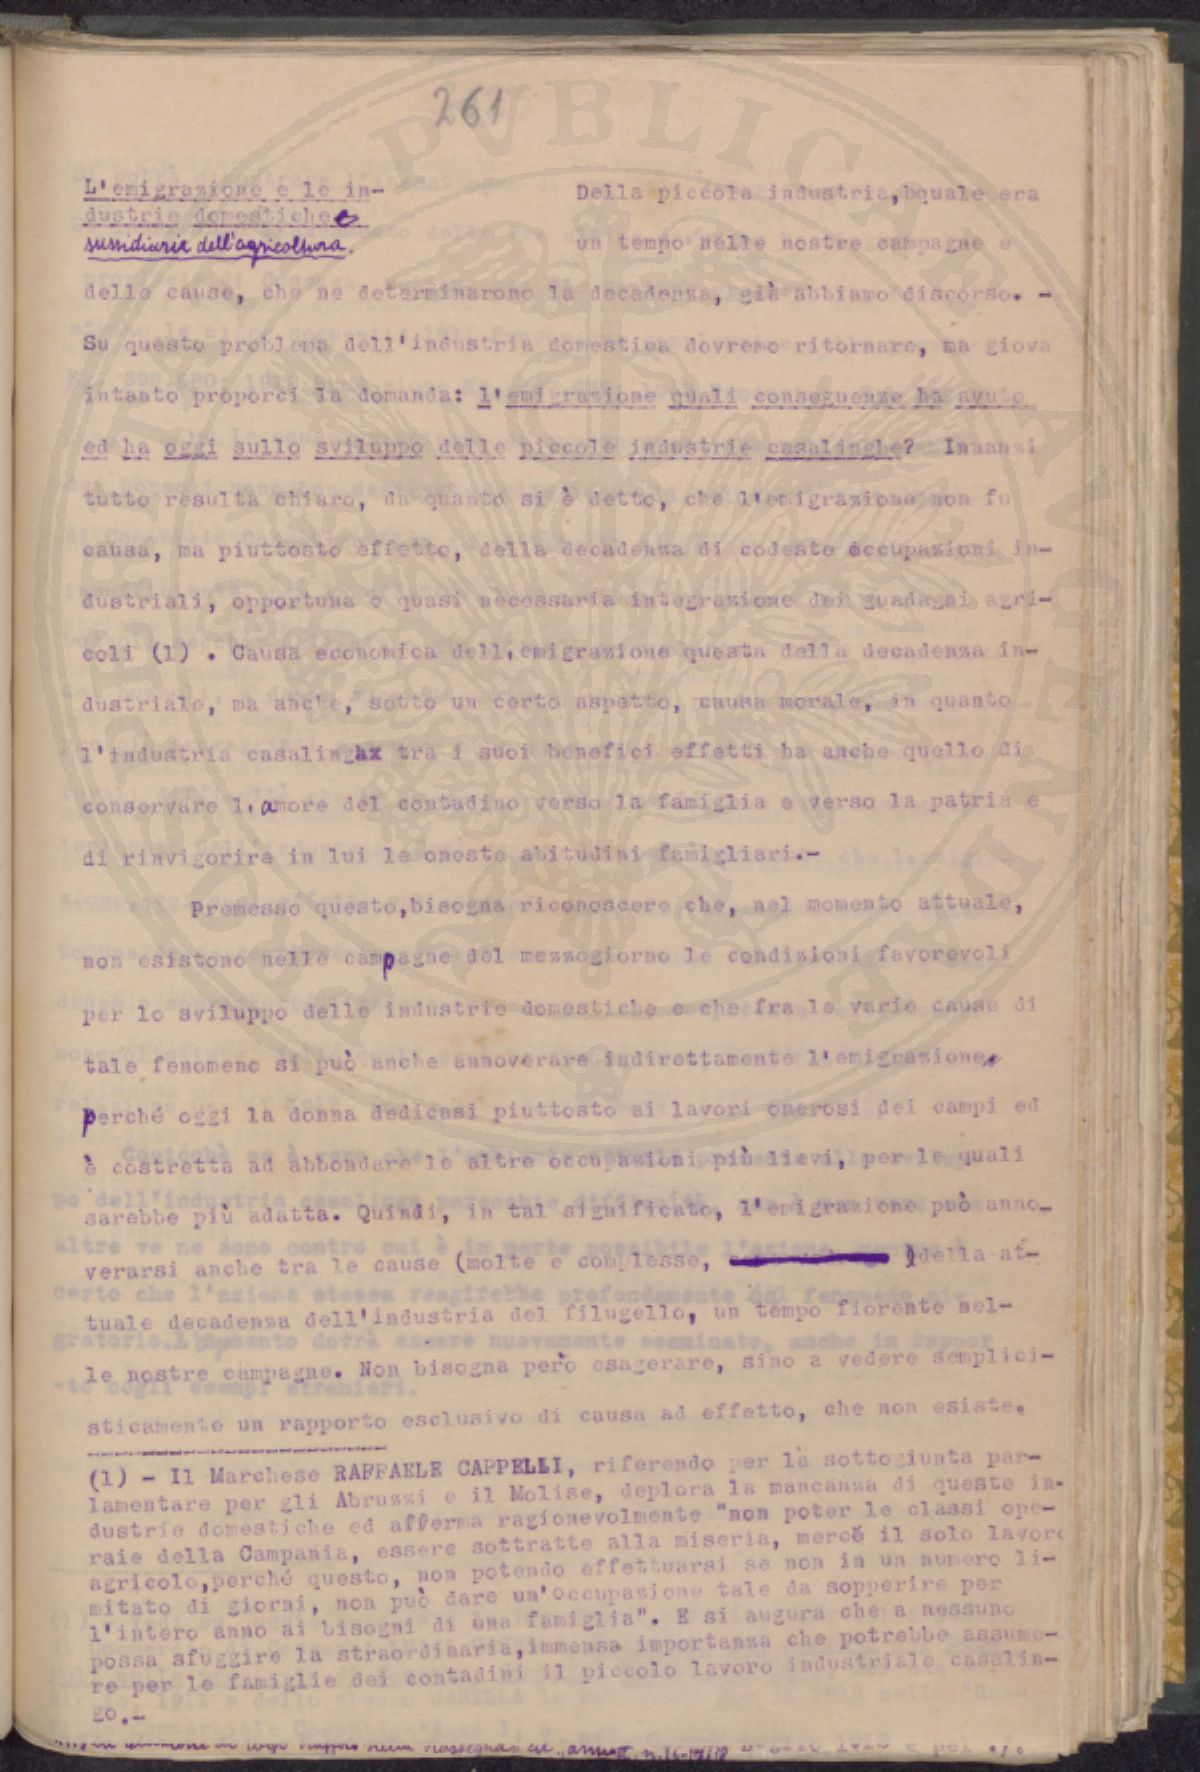 261
L'emigrazione e le in-
dustrie domestiche e
sussidiarie dell'agricoltura.
Della piccola industria, quale era
un tempo nelle nostre campagne e
delle cause, che ne determinarono la decadenza, già abbiamo discorso. -
Su questo problema dell'industria domestica dovremo ritornare, ma giova
intanto proporci la domanda: l'emigrazione quali conseguenze ha avuto
ed ha oggi sullo sviluppo delle piccole industrie casalinghe? Innanzi
tutto resulta chiaro, da quanto si è detto, che l'emigrazione non fu
causa, ma piuttosto effetto, della decadenza di codeste occupazioni in-
dustriali, opportuna e quasi necessaria integrazione dei guadagni agri-
coli (1) . Causa economica dell,emigrazione questa della decadenza in-
dustriale, ma anche, sotto un certo aspetto, causa morale, in quanto
l'industria casalingax tra i suoi benefici effetti ha anche quello di
conservare l,amore del contadino verso la famiglia e verso la patria e
di rinvigorire in lui le oneste abitudini famigliari.-
Premesso questo,bisogna riconoscere che, nel momento attuale,
non esistono nelle campagne del mezzogiorno le condizioni favorevoli
per lo sviluppo delle industrie domestiche e che fra le varie cause di
tale fenomeno si può anche annoverare indirettamente l'emigrazione,
perché oggi la donna dedicasi piuttosto ai lavori onerosi dei campi ed
è costretta ad abbondare le altre occupazioni più lievi, per le quali
sarebbe più adatta. Quindi, in tal significato, l'emigrazione può anno-
verarsi anche tra le cause (molte e complesse, )della at-
tuale decadenza dell'industria del filugello, un tempo fiorente nel-
le nostre campagne. Non bisogna però esagerare, sino a vedere semplici-
sticamente un rapporto esclusivo di causa ad effetto, che non esiste.
(1) - Il Marchese RAFFAELE CAPPELLI, riferendo per la sottogiunta par-
lamentare per gli Abruzzi e il Molise, deplora la mancanza di queste in-
dustrie domestiche ed afferma ragionevolmente "non poter le classi ope-
raie della Campania, essere sottratte alla miseria, mercé il solo lavoro
agricolo,perché questo, non potendo effettuarsi se non in un numero li-
mitato di giorni, non può dare un'occupazione tale da sopperire per
l'intero anno ai bisogni di una famiglia". E si augura che a nessuno
possa sfuggire la straordinaria,immensa importanza che potrebbe assume-
re per le famiglie dei contadini il piccolo lavoro industriale casalin-
go.-